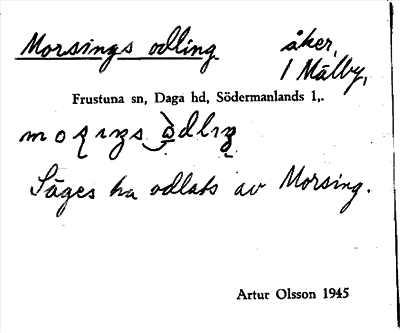 Morsings odling åker,
1 Målby,
Frustuna sn, Daga hd, Södermanlands l,.
Säges ha odlats av Morsing.
Artur Olsson 1945